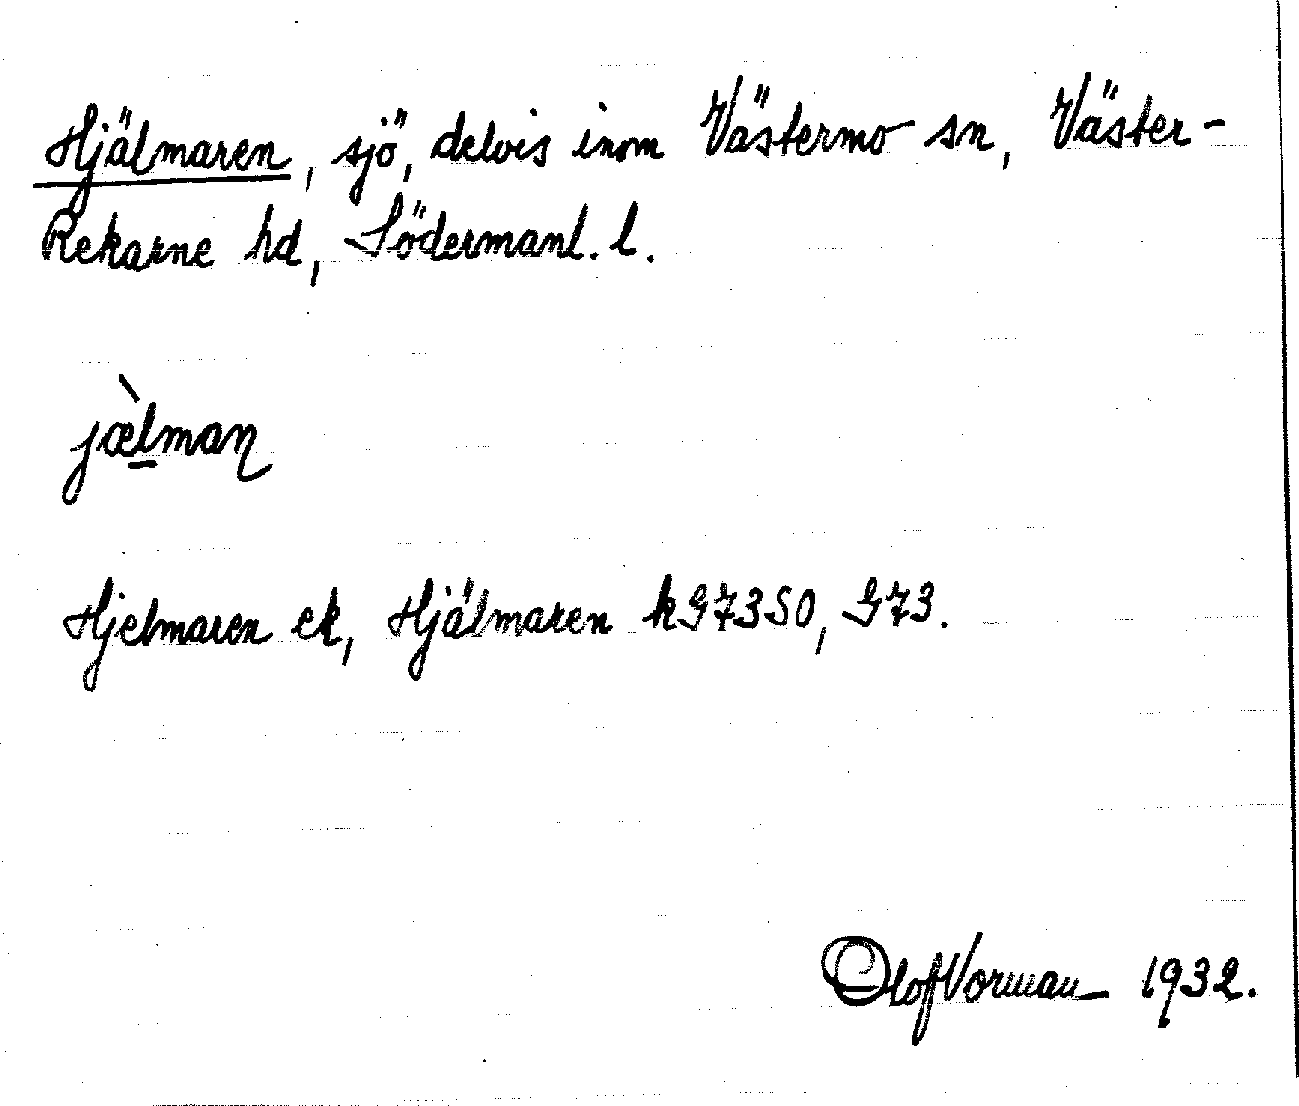 Hjälmaren, sjö, delvis inom Västermo sn, Väster-
Rekarne hd, Södermanl. l.
jæ̀lmaɳ
Hjelmaren ek, Hjälmaren kG7350, G73.
Olof Vorman 1932.